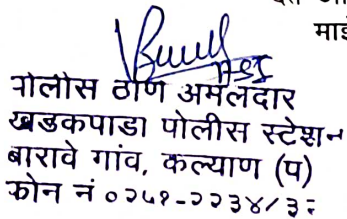 माई
ASI
पोलीस ठाणे अमलदार
खडकपाडा पोलीस स्टेशन
बारावे गांव, कल्याण (प)
फोन नं ०२५१-२२३४/३२